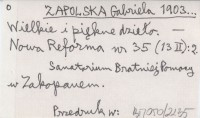 0
ZAPOLSKA Gabriela 1903...
Wielkie i piękne dzieło. —
Nowa Reforma nr 35 (13 II): 2
Sanatorium Bratniej Pomocy
w Zakopanem.
Przedruk w: